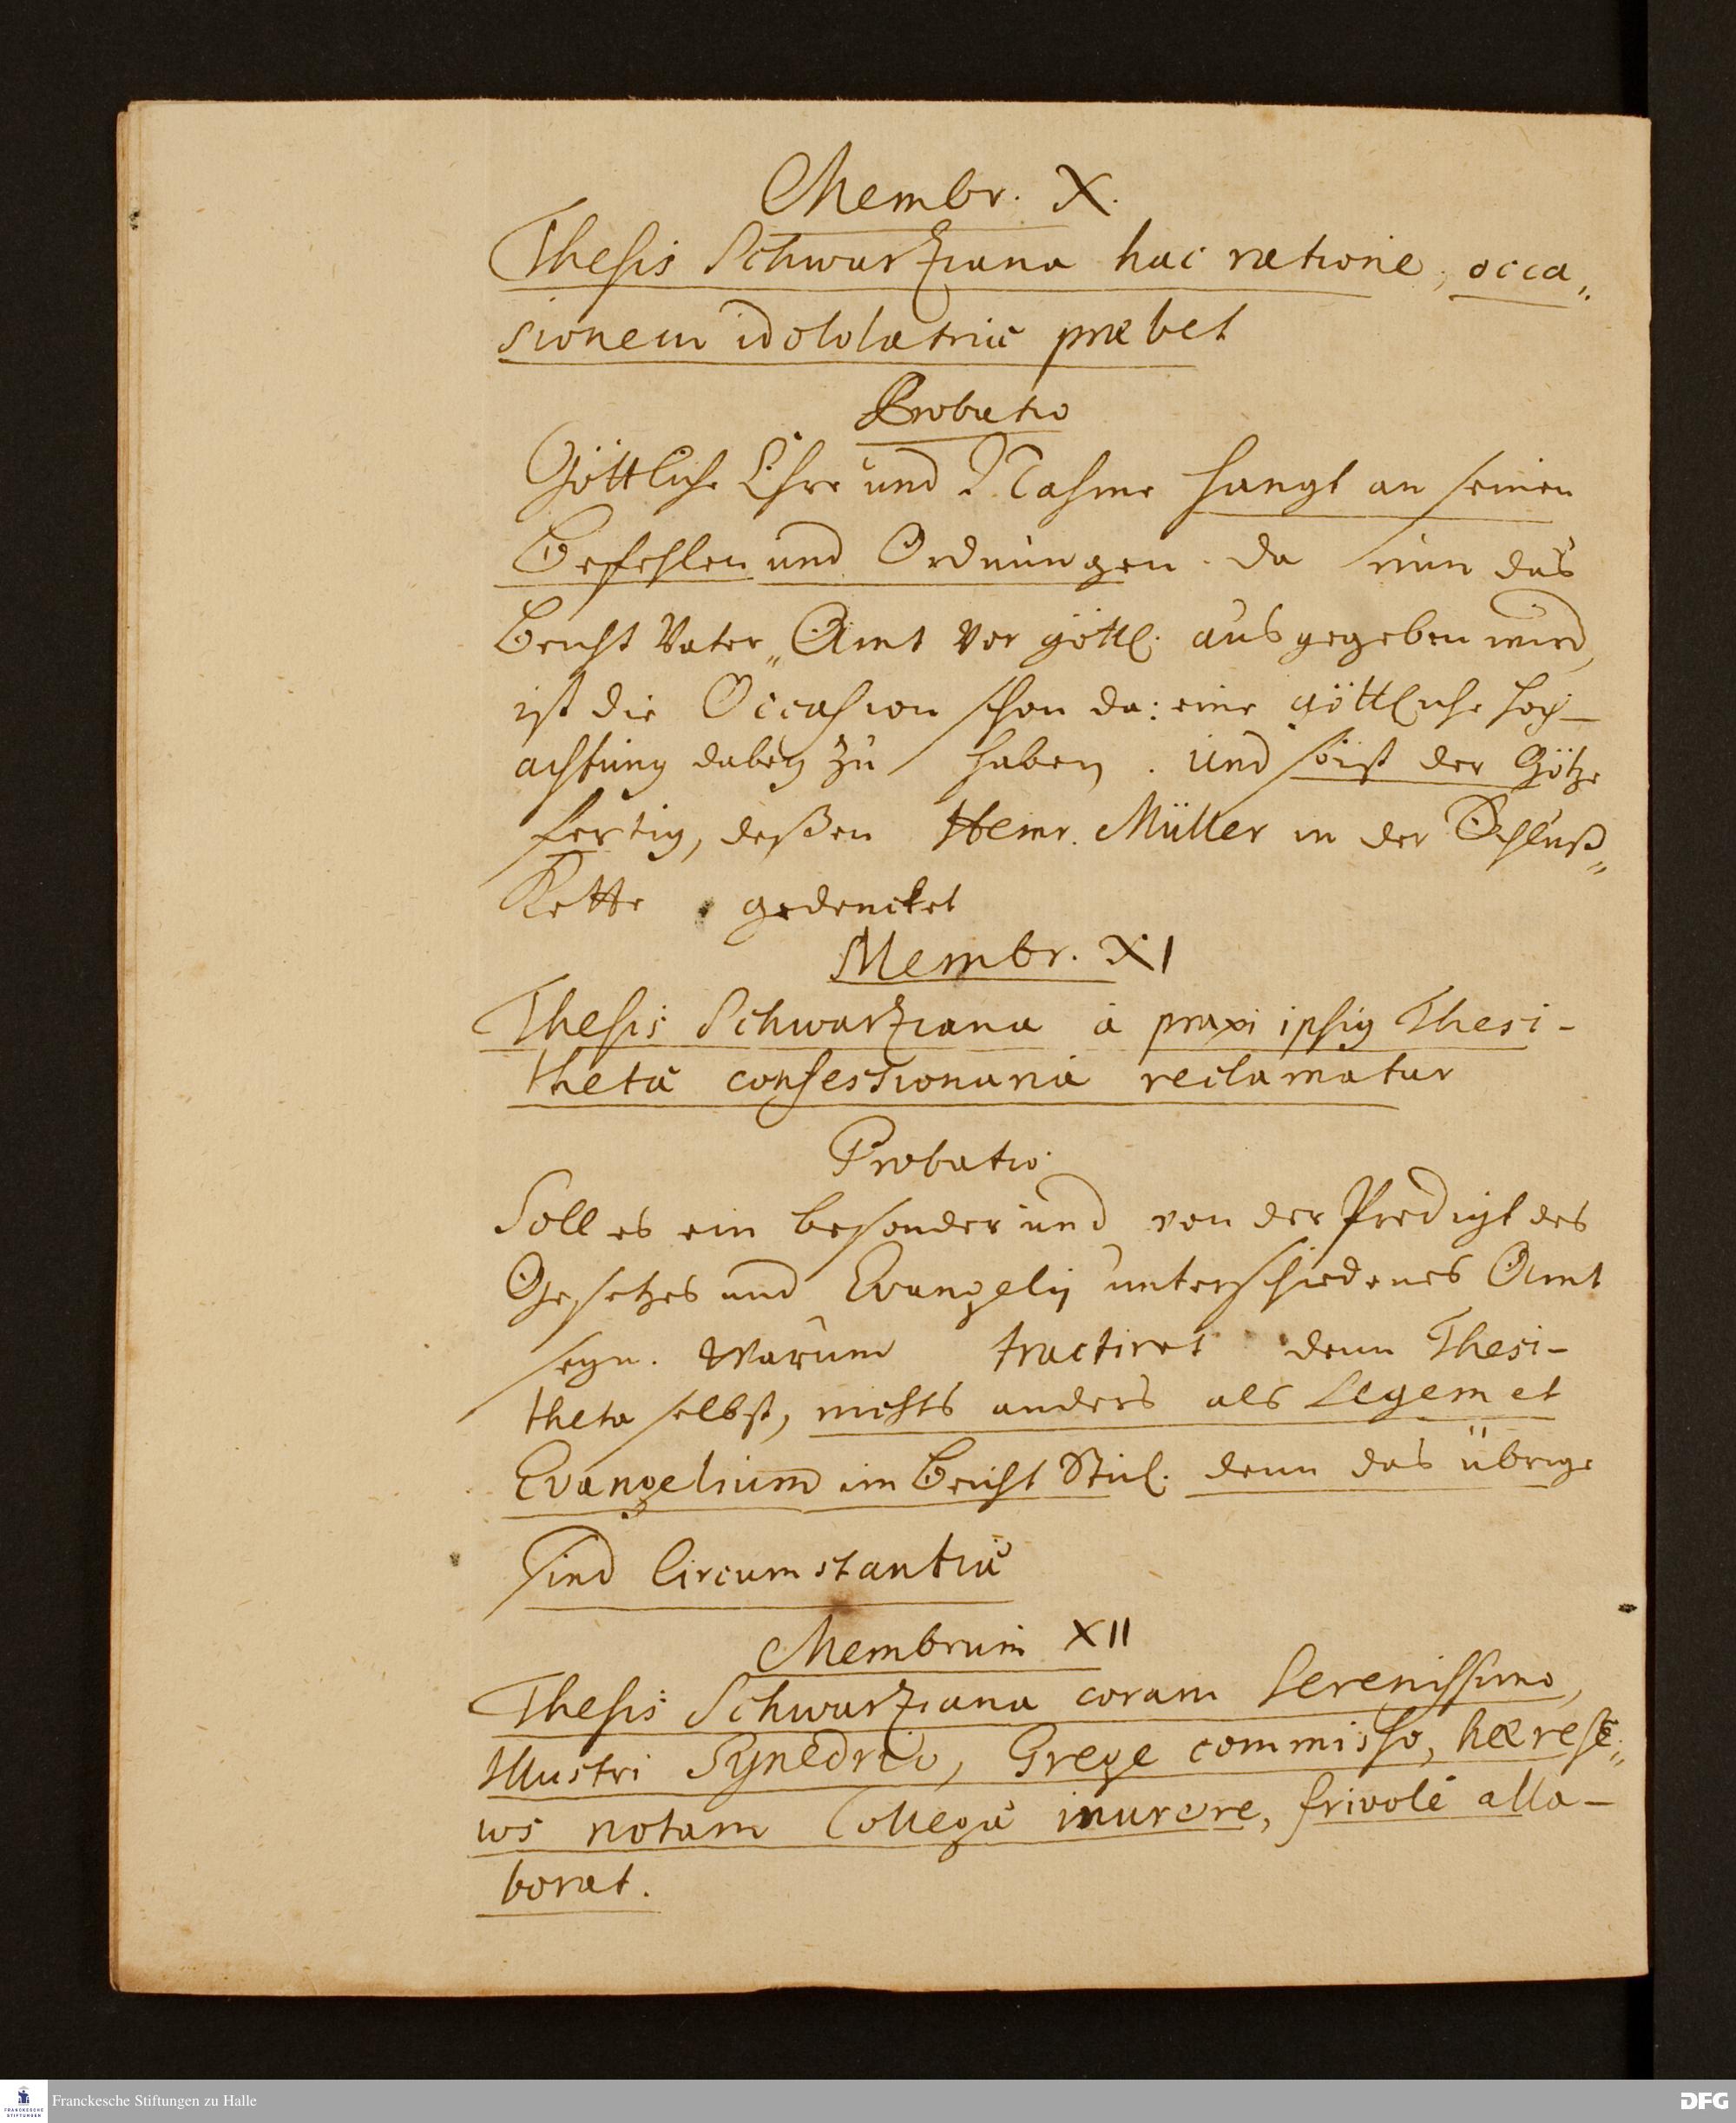 Membr. X.
Thesis Schwartziana hac ratione, occa„
sionem idololatriæ præbet
Probatio
Göttliche Ehre und Nahme hangt an seinen
Befehlen und Ordnungen. da nun das
Beicht Vater„ Amt vor göttl. ausgegeben wird,
ist die Occasion schon da: eine göttliche Hoch-
achtung dabey zu haben. Und so ist der Götze
fertig, deßen Henr. Müller in der Schluß„
Kette gedencket
Membr. XI
Thesis Schwartziana à praxi ipsius Thesi-
thetæ confessionaria reclamatur
Probatio
Soll es ein besonder und von der Predigt des
Gesetzes und Evangelij unterschiedenes Amt
seyn. Warum tractiret denn Thesi-
theta selbst, nichts anders als Legem et
Evangelium im Beicht Stul. denn das übrige
sind Circumstantiæ
Membrum XII
Thesis Schwartziana coram Serenissimo,
Illustri Synedrio, Grege commisso, hærese„
ws notam Collegæ inurere, frivolè alla-
borat.
Franckesche Stiftungen zu Halle
FRANCKESCHE
STIFTUNGEN
DFG